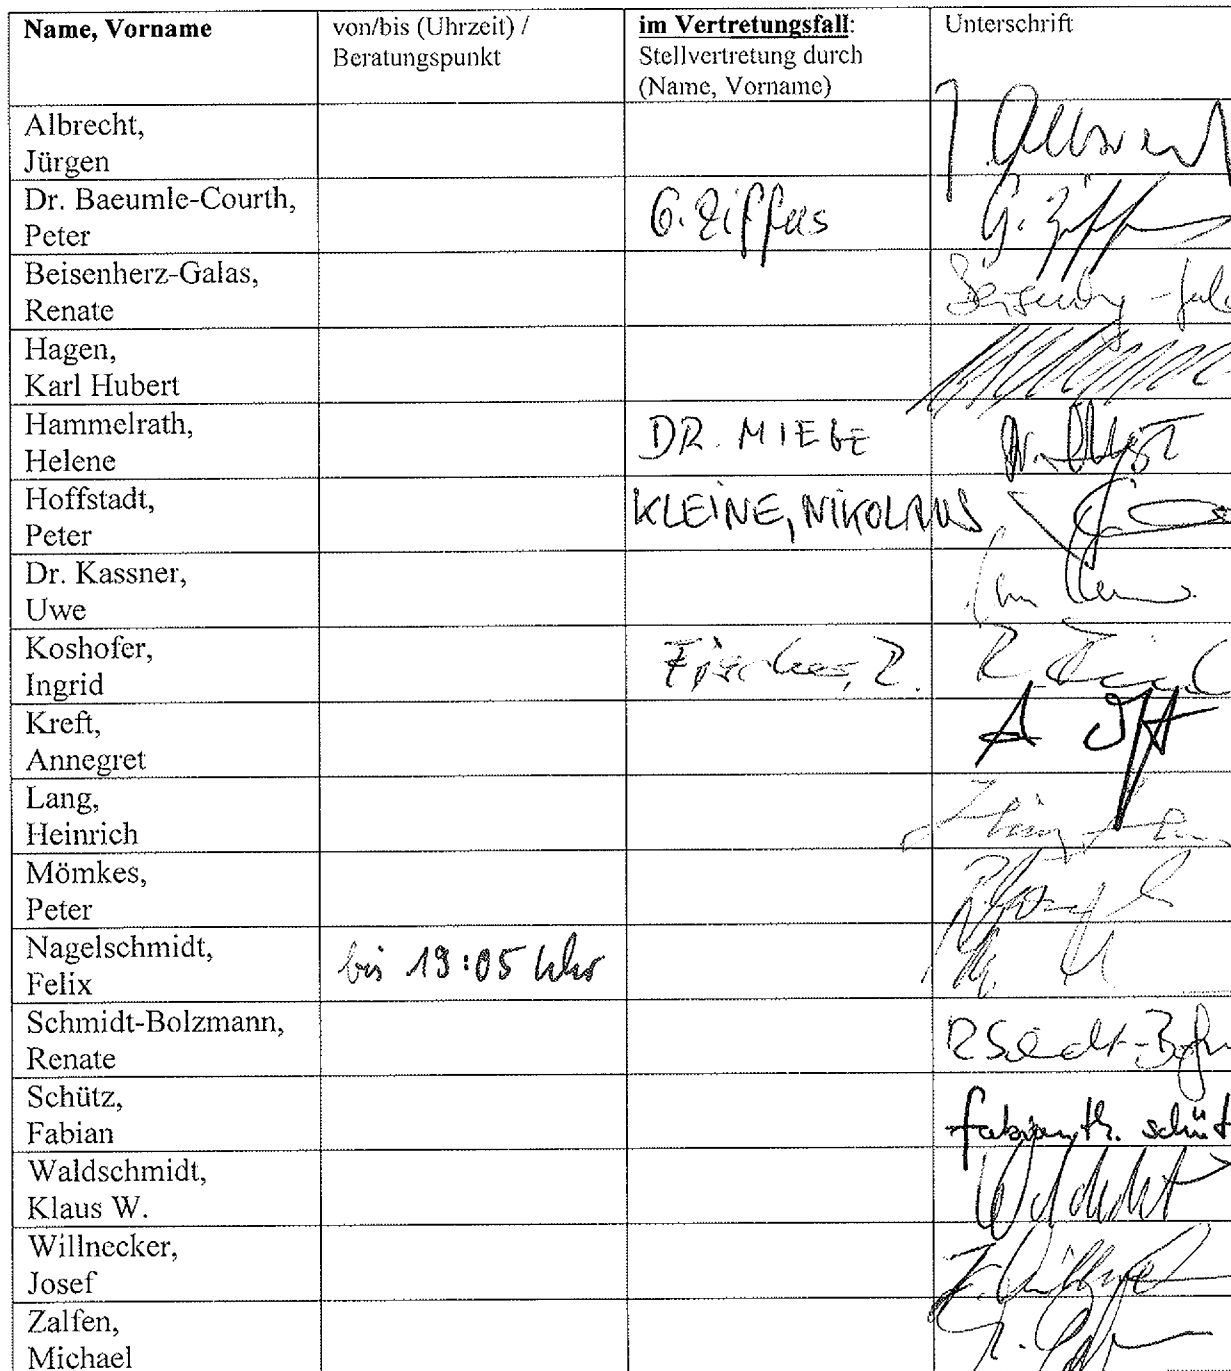 Name, Vorname
von/bis (Uhrzeit) /
Beratungspunkt
im Vertretungsfall:
Stellvertretung durch
(Name, Vorname)
Unterschrift
Albrecht,
Jürgen
Dr. Baeumle-Courth,
Peter
G. Ziffus
G. Ziff
Beisenherz-Galas,
Renate
Hagen,
Karl Hubert
Hammelrath,
Helene
DR. MIEGE
Hoffstadt,
Peter
KLEINE, NIKOLAUS
Dr. Kassner,
Uwe
Koshofer,
Ingrid
Fischer, R.
Kreft,
Annegret
Lang,
Heinrich
Mömkes,
Peter
Nagelschmidt,
Felix
bis 19:05 Uhr
Schmidt-Bolzmann,
Renate
Schütz,
Fabian
fabian th. schüt
Waldschmidt,
Klaus W.
Willnecker,
Josef
Zalfen,
Michael